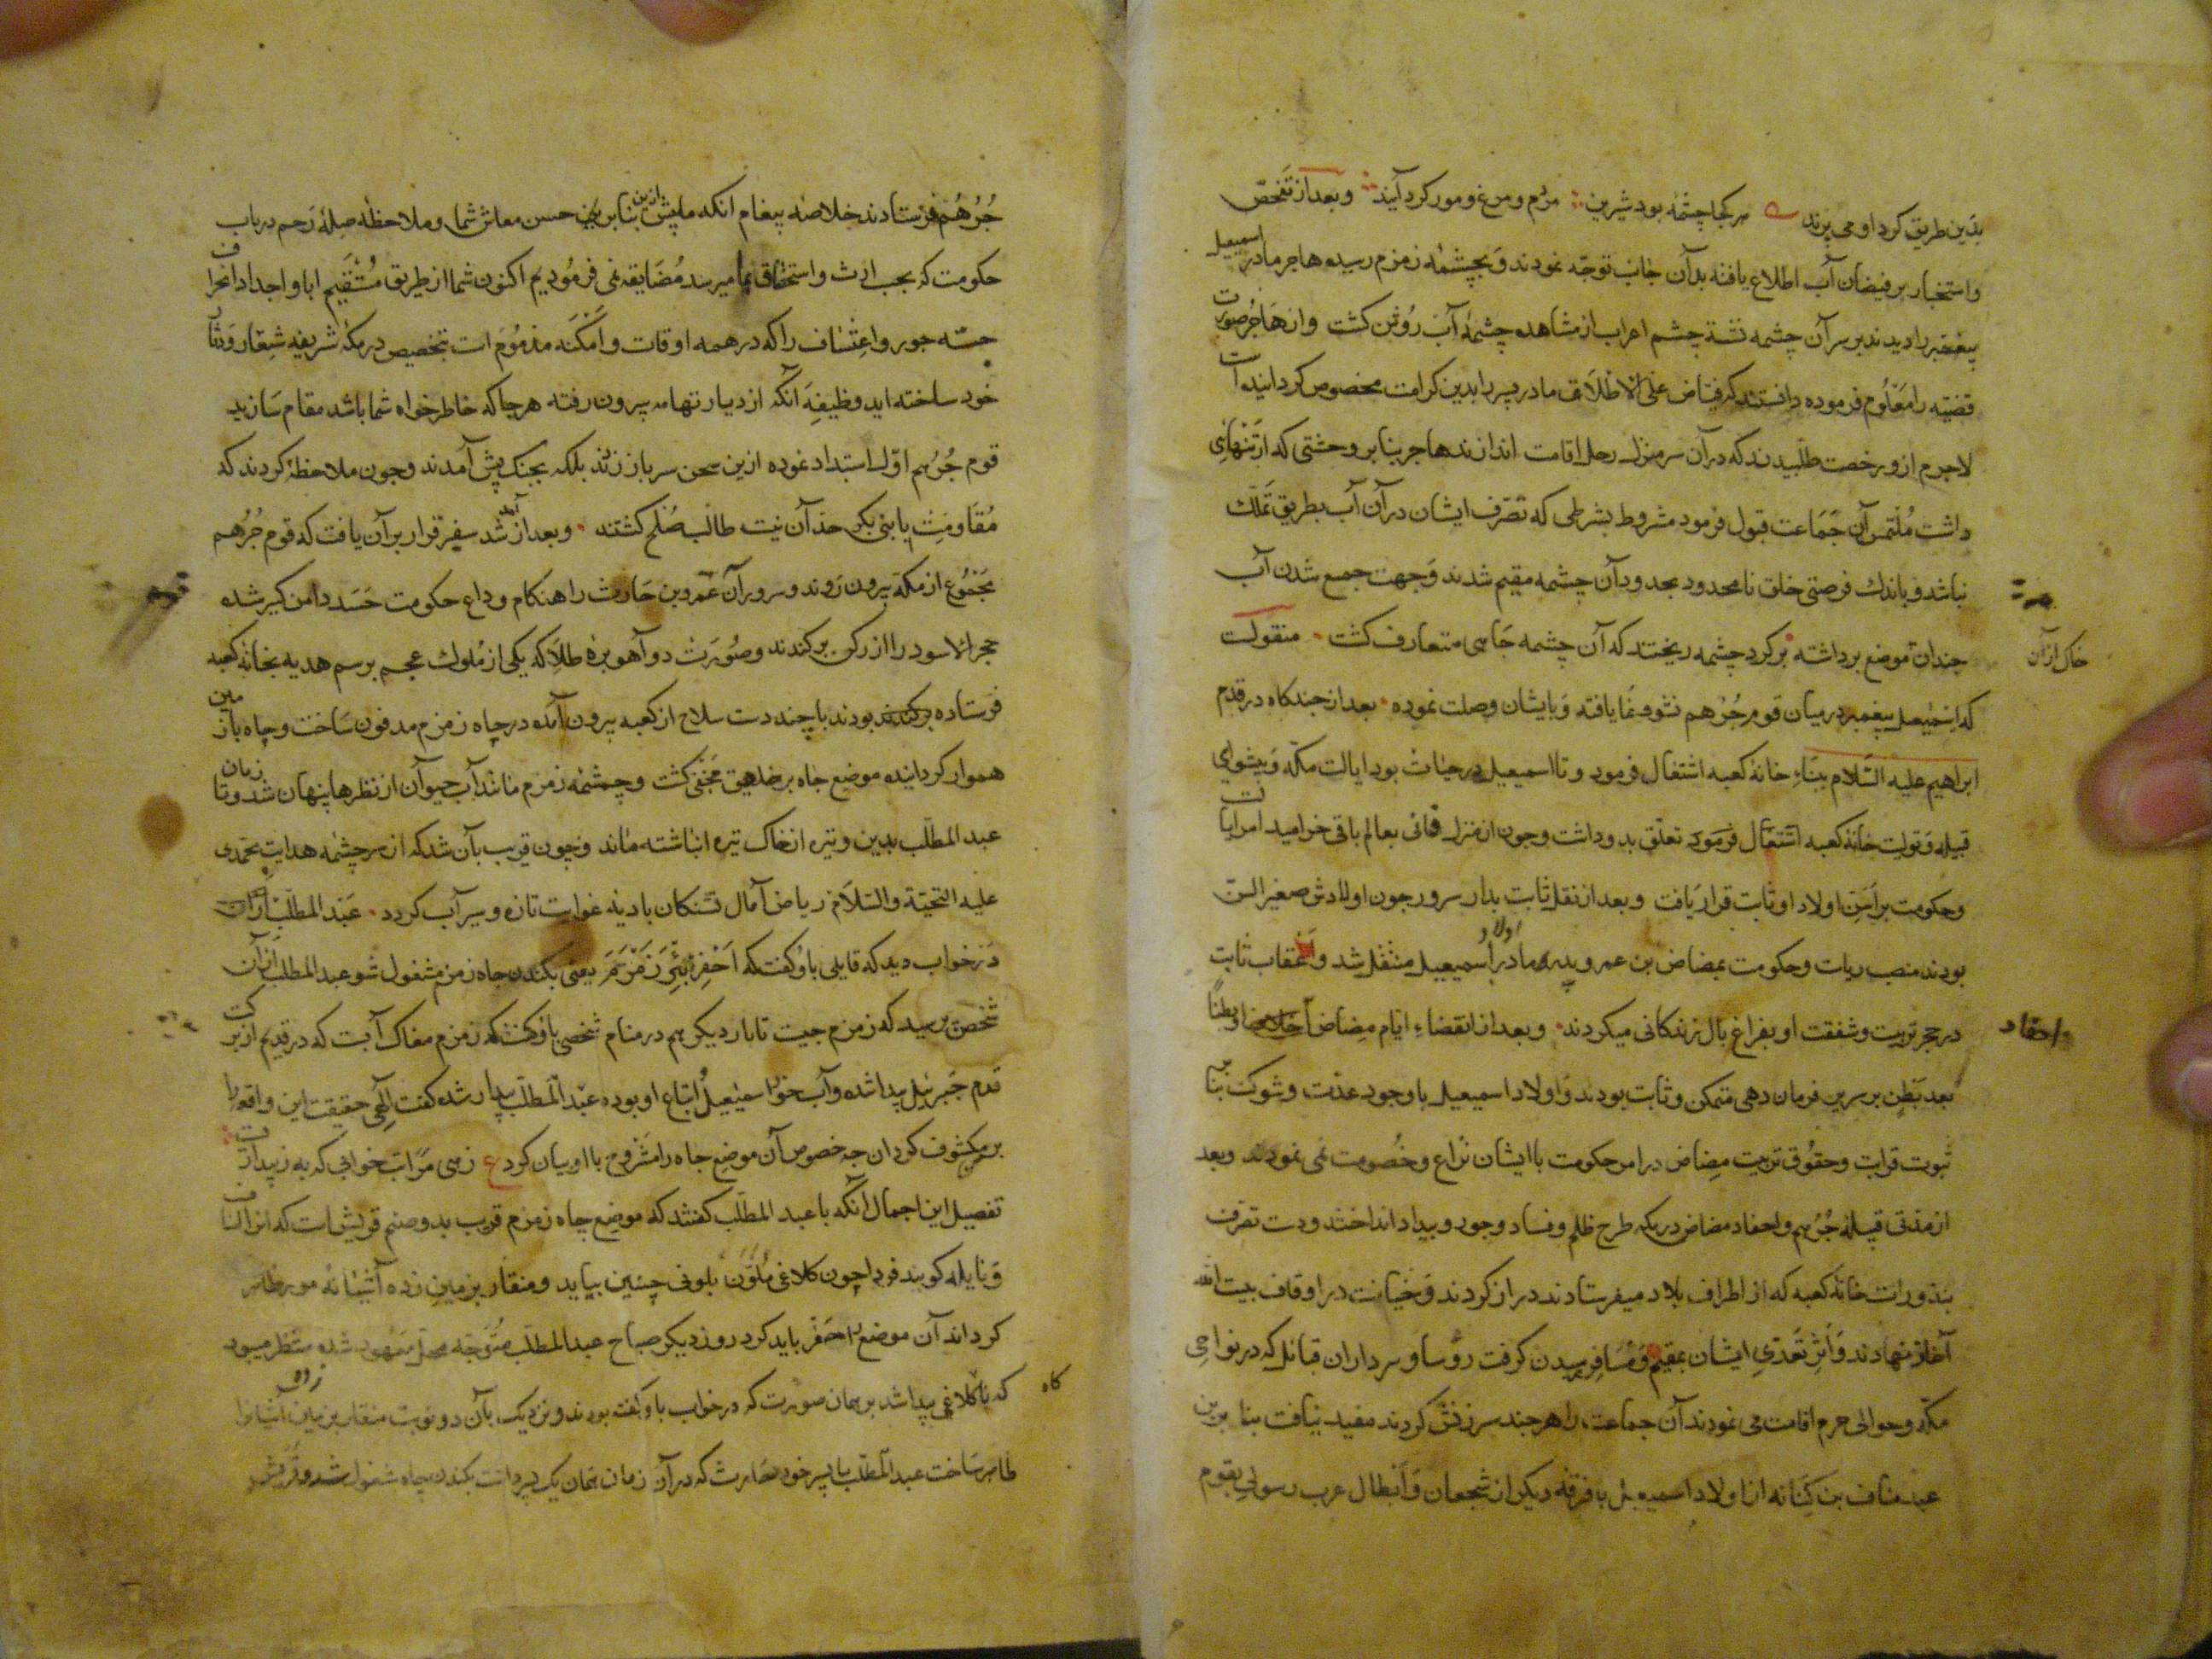 بدین طریق کرد او می پرند هر کجا چشمه بود شیرین مردم و مرغ و مور کرد آیند و بعد از تفحص
و استخبار بر فیضان آب اطلاع یافته بدآن جانب توجه نمودند و بچشمه زمزم رسیده هاجر مادر اسمیعیل
پیغمبر را دیدند بر سر آن چشمه نشسته چشم اعراب از مشاهده چشمه آب روشن کشت و از هاجر صورت
قضیه را معلوم فرموده دانستند که فیاض علی الاطلاق مادر و پسر را بدین کرامت مخصوص کردانیده است
لاجرم ازو رخصت طلبیدند که در آن سر منزل رحل اقامت اندازند هاجر بنا بر وحشتی که از تنهایی
داشت ملتمس آن جماعت قبول فرمود مشروط بشرطی که تصرف ایشان در آن آب بطریق تملک
نباشد و باندک فرصتی خلق نامحدود بحدود آن چشمه مقیم شدند و جهت جمع شدن آب
چندان خاک از آن موضع برداشته بر کرد چشمه ریختند که آن چشمه جاهی متعارف کشت منقولست
که اسمیعیل پیغمبر در میان قوم جرهم نشو و نما یافته و با ایشان وصلت نموده بعد از چندکاه در قدم
ابراهیم علیه السلام ببناء خانه کعبه اشتغال فرمود و تا اسمیعیل در حیات بود ایالت مکه و پیشوایی
قبیله و تولیت خانه کعبه اشتغال فرمود تعلق بدو داشت و چون از منزل فانی بعالم باقی خرامید امر ایالت
و حکومت بر اسن اولاد او ثابت قرار یافت و بعد از نقل ثابت بدار سرور چون اولادش صغیر السن
بودند منصب ریاست و حکومت بمضاض بن عمرو پدر مادر اولاد اسمیعیل منتقل شد و اعقاب ثابت
در حجر تربیت و شفقت او بفراغ بال زندکانی میکردند و بعد از انقضاء ایام مضاض احفاد او بطنا
بعد بطن بر سریر فرمان دهی متمکن و ثابت بودند و اولاد اسمیعیل با وجود عدت و شوکت بنا بر
ثبوت قرابت و حقوق تربیت مضاض در امر حکومت با ایشان نزاع و خصومت نمی نمودند و بعد
از مدتی قبیله جرهم و احفاد مضاض در مکه طرح ظلم و فساد و جود و بیداد انداختند و دست تصرف
بنذورات خانه کعبه که از اطراف بلاد میفرستادند دراز کردند و خیانت در اوقاف بیت الله
آغاز نهادند و اثر تعدی ایشان بمقیم و مسافر رسیدن کرفت رؤسا و سرداران قبائل که در نواحی
مکه و حوالی حرم اقامت می نمودند آن جماعت را هر چند سرزنش کردند مفید نیافت بنا برین
عبد مناف بن کنانه از اولاد اسمیعیل با فرقه دیکر از شجعان و ابطال عرب رسولی بقوم
جرهم فرستادند خلاصه پیغام آنکه ما پیش ازین بنا بر حسن معاش شما و ملاحظه صله رحم در باب
حکومت که بحسب ارث و استحقاق بما میرسد مضایقه نمی فرمودیم اکنون شما از طریق مستقیم ابا و اجداد انحراف
جسته جور و اعتساف را که در همه اوقات و امکنه مذموم است بتخصیص در مکه شریفه شعار و دثار
خود ساخته اید وظیفه آنکه از دیار تهامه بیرون رفته هر جا که خاطر خواه شما باشد مقام سازید
قوم جرهم اول استبداد نموده ازین سخن سرباز زدند بلکه بجنک پیش آمدند و چون ملاحظه کردند که
مقاومت با بنی بکر حد آن نیست طالب صلح کشتند و بعد از آمد شد سفیر قرار بر آن یافت که قوم جرهم
مجموع از مکه بیرون روند و سرور آن قوم عمرو بن حارث را هنکام وداع حکومت حسد دامن کیر شده
حجر الاسود را از رکن برکندند و صورت دو آهو بره طلا که یکی از ملوک عجم برسم هدیه بخانه کعبه
فرستاده بودند با چند دست سلاح از کعبه بیرون آمده در چاه زمزم مدفون ساخت و چاه با زمین
هموار کردانیده موضع چاه بر خلایق مخفی کشت و چشمه زمزم مانند آب حیوان از نظرها پنهان شد و تا زمان
عبد المطلب بدین وتیره از خاک تیره انباشته ماند و چون قریب بآن شد که از سرچشمه هدایت محمدی
علیه التحیة والسلام ریاض آمال تشنکان بادیه غوایت تازه و سیرآب کردد عبد المطلب
در خواب دید که قایلی باو کفت که احفر بئر زمزم یعنی بکندن چاه زمزم مشغول شو عبد المطلب از آن
شخص پرسید که زمزم چیست تا بار دیکر هم در منام شخصی باو کفت که زمزم مغاک آبست که در قدیم از برکت
قدم جبرئیل پیدا شده و آب خور اسمیعیل و اتباع او بوده عبد المطلب بیدار شده کفت الهی حقیقت این واقعه را
بر من مکشوف کردان چه خصوص آن موضع چاه را مشروح با او بیان کرد ع زهی مراتب خوابی که به ز بیداریست
تفصیل این اجمال آنکه با عبد المطلب کفتند که موضع چاه زمزم قریب بدو صنم قریش است که انرا اساف
و نایله کویند فردا چون کلاغی ملون بلونی چنین بیاید و منقار بر زمین زده آشیانه مور ظاهر
کرداند آن موضع را حفر باید کرد روز دیکر صباح عبد المطلب متوجه محل معهود شده منتظر میبود
که ناکاه کلاغی پیدا شد بر همان صورت که در خواب باو کفته بودند و نزدیک بآن دو نوبت منقار بر زمین زده
ظاهر ساخت عبد المطلب با پسر خود حارث که در آن زمان همان یک پسر داشت بکندن چاه مشغول شد و قریش